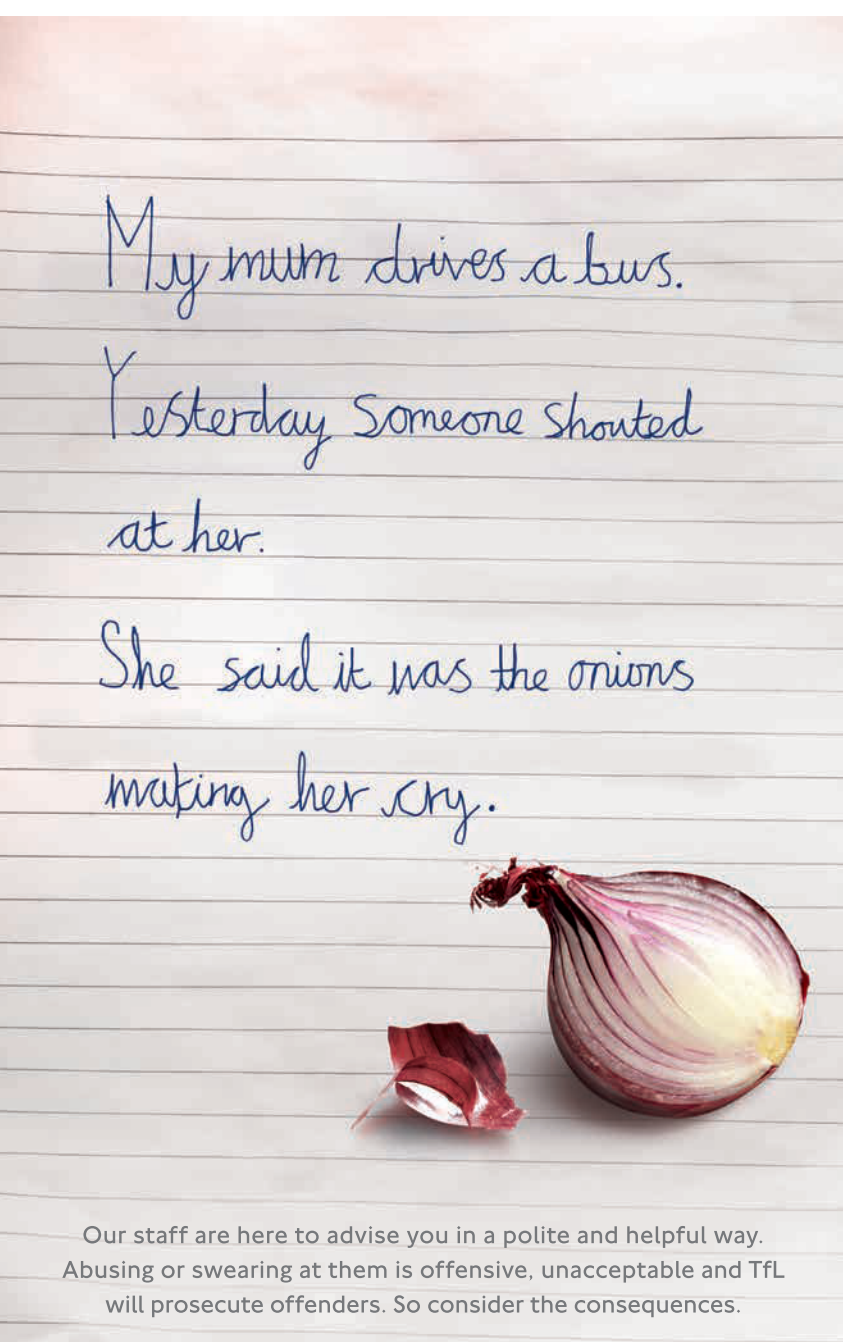 My mum drives a bus.
Yesterday someone shouted
at her.
She said it was the onions
making her cry.
Our staff are here to advise you in a polite and helpful way.
Abusing or swearing at them is offensive, unacceptable and TfL
will prosecute offenders. So consider the consequences.